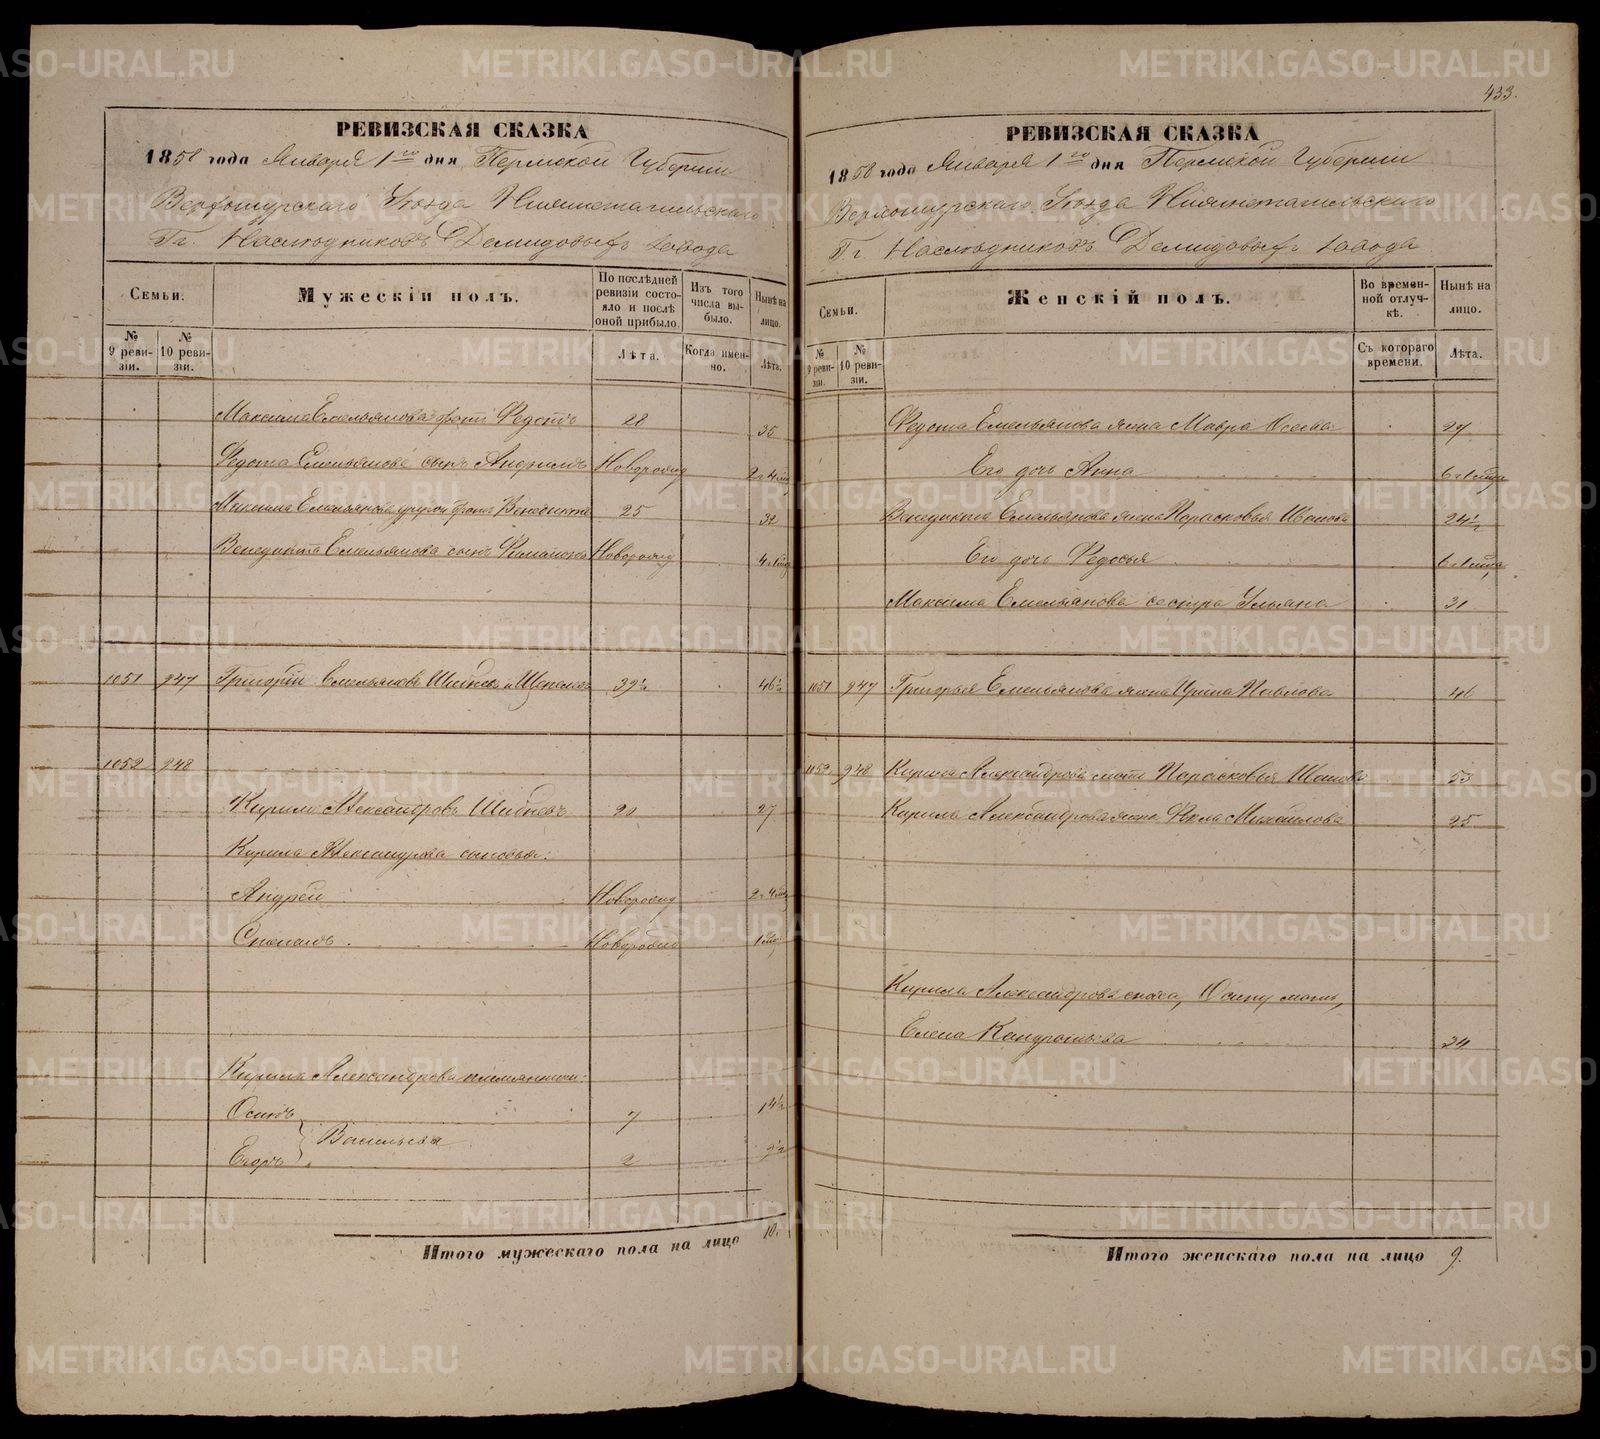 433.
РЕВИЗСКАЯ СКАЗКА
1858 года Января 1го дня Пермской Губернии
Верхотурского Уѣзда Нижнетагильскаго
Гг. Наслѣдниковъ Демидовыхъ завода
Семьи.
Мужескій полъ.
По послѣдней ревизіи состояло и послѣ оной прибыло.
Изъ того числа выбыло.
Нынѣ на лицо.
№ 9 ревизіи.
№ 10 ревизіи.
Лѣта.
Когда именно.
Лѣта.
Максима Емельянова братъ Федотъ 28 35
Федота Емельянова сынъ Новорожд 2 г 4 мц
Максима Емельянова другой братъ Венедиктъ 25 32
Венедикта Емельянова сынъ Новорожд
1051 947 Григорій Емельяновъ 39½ 46½
1052 948
Кирило Александровъ 20 27
Кирила Александрова сыновья:
Андрей Новорожд
Новорожд
Кирила Александрова племянники:
Осипъ 7 14½
Васильевы
Егоръ 2 9½
Итого мужескаго пола на лицо 10.
РЕВИЗСКАЯ СКАЗКА
1858 года Января 1го дня Пермской Губерніи
Верхотурскаго Уѣзда Нижнетагильскаго
Гг. Наслѣдниковъ Демидовыхъ завода
Семьи.
Женскій полъ.
Во временной отлучкѣ.
Нынѣ на лицо.
№ 9 ревизіи.
№ 10 ревизіи.
Съ котораго времени.
Лѣта.
Федота Емельянова жена Мавра 27
Его дочь Анна
Венедикта Емельянова жена Парасковья Иванова 24½
Его дочь Федосья
Максима Емельянова сестра Ульяна 31
1051 947 Григорья Емельянова жена Ирина Павлова 46
1052 948 Кирила Александрова мать Парасковья 53
Кирила Александрова жена Фекла Михайлова 25
Кирила Александрова сноха, Осипу мать,
Елена Кандратьева 34
Итого женскаго пола на лицо 9.
METRIKI.GASO-URAL.RU